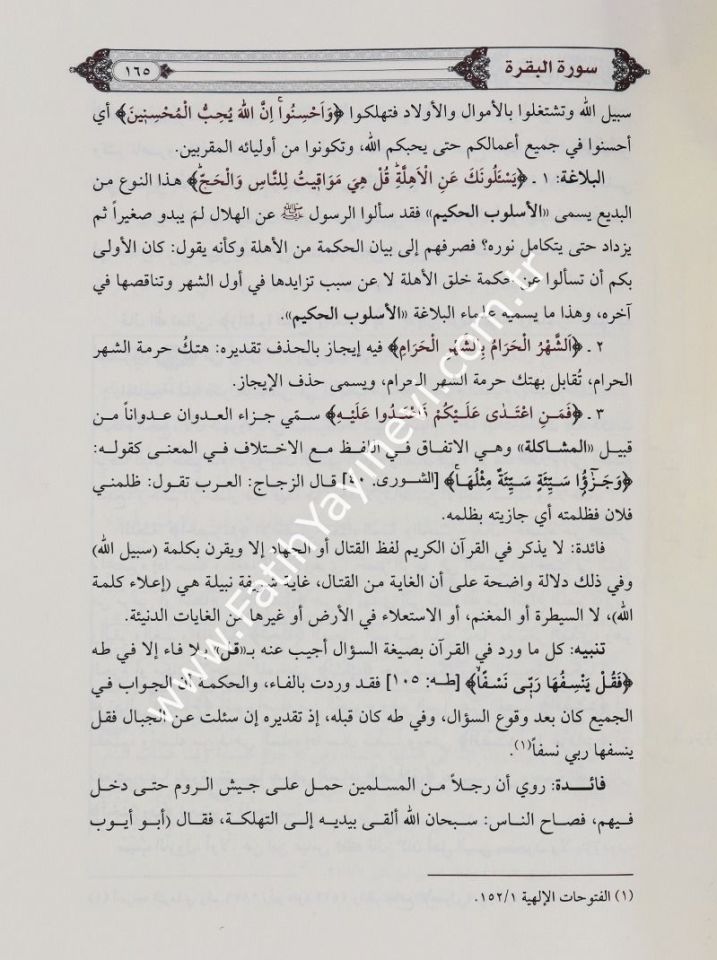 سورة البقرة
١٦٥
سبيل الله وتشتغلوا بالأموال والأولاد فتهلكوا ﴿وَاَحْسِنُواۚ اِنَّ اللّٰهَ يُحِبُّ الْمُحْسِنٖينَ﴾ أي
أحسنوا في جميع أعمالكم حتى يحبكم الله، وتكونوا من أوليائه المقربين.
البلاغة: ١ ـ ﴿يَسْـَٔلُونَكَ عَنِ الْاَهِلَّةِؕ قُلْ هِيَ مَوَاقٖيتُ لِلنَّاسِ وَالْحَجِّؕ﴾ هذا النوع من
البديع يسمى «الأسلوب الحكيم» فقد سألوا الرسول ﷺ عن الهلال لمَ يبدو صغيراً ثم
يزداد حتى يتكامل نوره؟ فصرفهم إلى بيان الحكمة من الأهلة وكأنه يقول: كان الأولى
بكم أن تسألوا عن حكمة خلق الأهلة لا عن سبب تزايدها في أول الشهر وتناقصها في
آخره، وهذا ما يسميه علماء البلاغة «الأسلوب الحكيم».
٢ ـ ﴿اَلشَّهْرُ الْحَرَامُ بِالشَّهْرِ الْحَرَامِ﴾ فيه إيجاز بالحذف تقديره: هتكُ حرمة الشهر
الحرام، تُقابل بهتك حرمة الشهر الحرام، ويسمى حذف الإيجاز.
٣ ـ ﴿فَمَنِ اعْتَدٰى عَلَيْكُمْ فَاعْتَدُوا عَلَيْهِ﴾ سمّي جزاء العدوان عدواناً من
قبيل «المشاكلة» وهي الاتفاق في اللفظ مع الاختلاف في المعنى كقوله:
﴿وَجَزٰٓؤُا سَيِّئَةٍ سَيِّئَةٌ مِثْلُهَاۚ﴾ [الشورى: ٤٠] قال الزجاج: العرب تقول: ظلمني
فلان فظلمته أي جازيته بظلمه.
فائدة: لا يذكر في القرآن الكريم لفظ القتال أو الجهاد إلا ويقرن بكلمة (سبيل الله)
وفي ذلك دلالة واضحة على أن الغاية من القتال، غاية شريفة نبيلة هي (إعلاء كلمة
الله)، لا السيطرة أو المغنم، أو الاستعلاء في الأرض أو غيرها من الغايات الدنيئة.
تنبيه: كل ما ورد في القرآن بصيغة السؤال أجيب عنه بـ«قل» بلا فاء إلا في طه
﴿فَقُلْ يَنْسِفُهَا رَبّٖى نَسْفًاۙ﴾ [طه: ١٠٥] فقد وردت بالفاء، والحكمة أن الجواب في
الجميع كان بعد وقوع السؤال، وفي طه كان قبله، إذ تقديره إن سئلت عن الجبال فقل
ينسفها ربي نسفاً(١).
فائدة: روي أن رجلاً من المسلمين حمل على جيش الروم حتى دخل
فيهم، فصاح الناس: سبحان الله ألقى بيديه إلى التهلكة، فقال (أبو أيوب
(١) الفتوحات الإلهية ١٥٢/١.
www.FatihYayinevi.com.tr